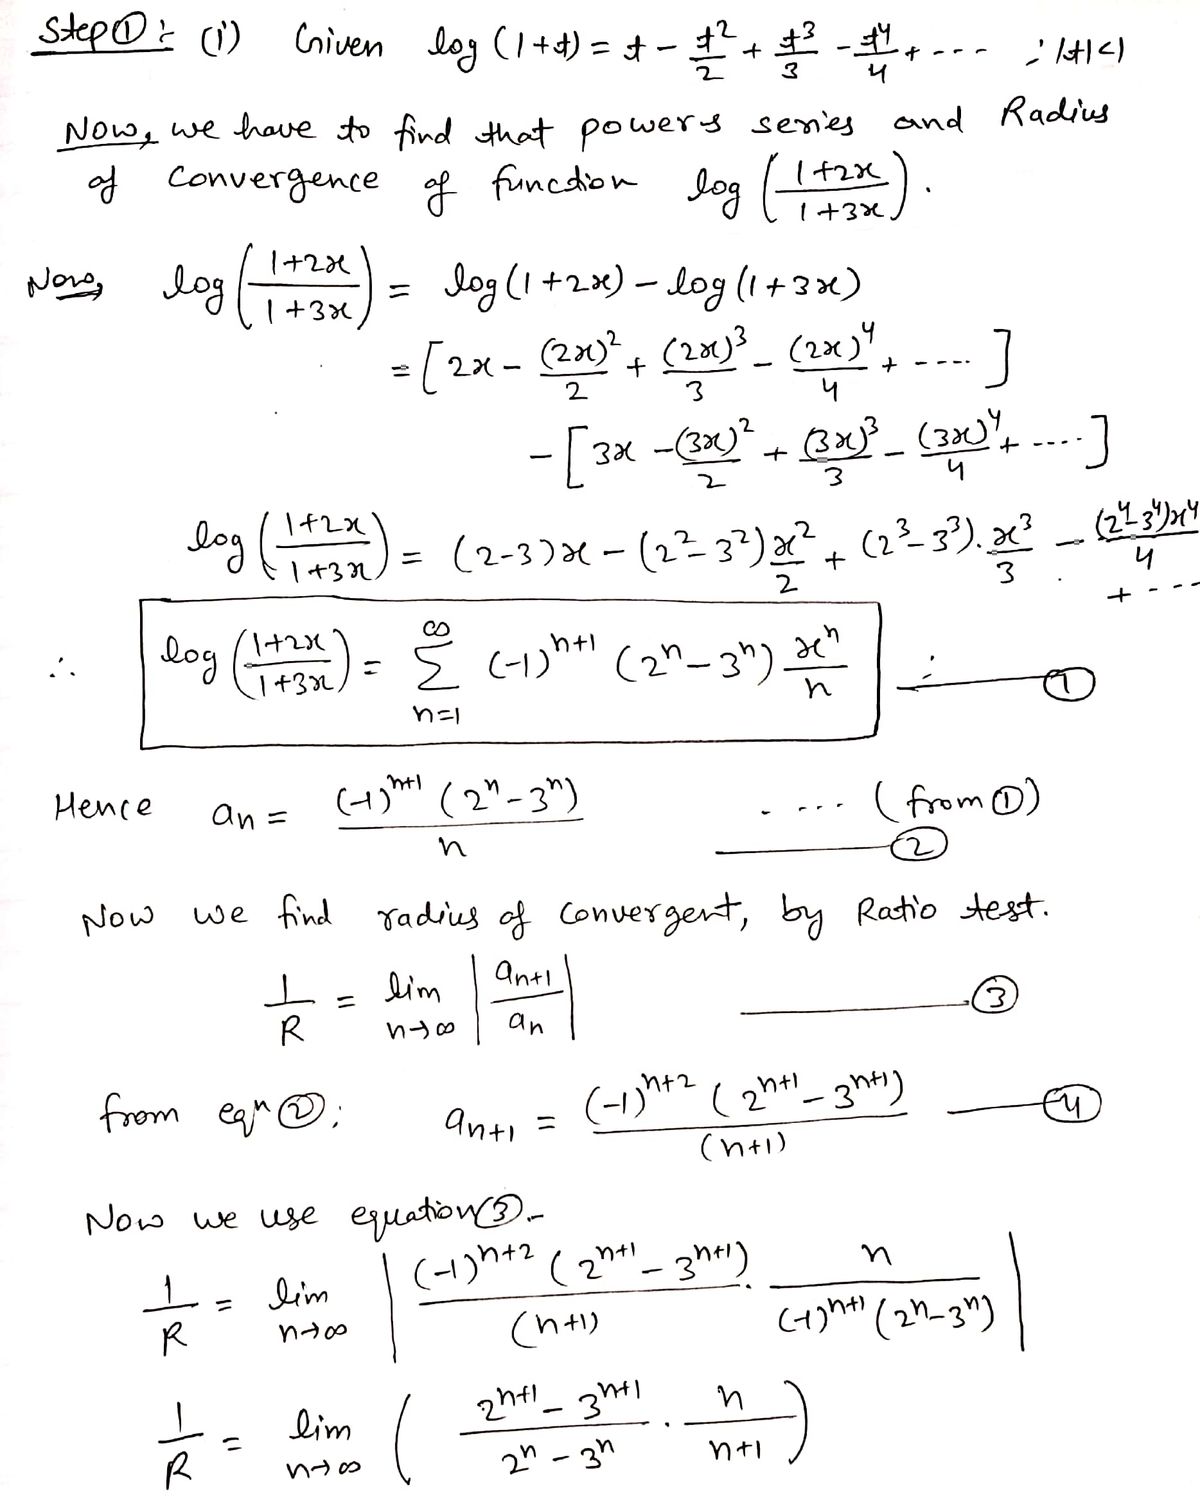 Step①:- (i) Given log(1+t) = t - t²/2 + t³/3 - t⁴/4 + --- ; |t|<1
Now, we have to find that powers series and Radius
of convergence of function log((1+2x)/(1+3x)).
Now, log((1+2x)/(1+3x)) = log(1+2x) - log(1+3x)
= [2x - (2x)²/2 + (2x)³/3 - (2x)⁴/4 + ---- ]
- [3x - (3x)²/2 + (3x)³/3 - (3x)⁴/4 + ---- ]
log((1+2x)/(1+3x)) = (2-3)x - (2²-3²)x²/2 + (2³-3³).x³/3 - (2⁴-3⁴)x⁴/4
+ ---
∴ log((1+2x)/(1+3x)) = ∑_{n=1}^{∞} (-1)^{n+1} (2ⁿ-3ⁿ) xⁿ/n ; ——①
Hence aₙ = (-1)^{n+1} (2ⁿ-3ⁿ)/n . --- (from ①)
——②
Now we find radius of convergent, by Ratio test.
1/R = lim_{n→∞} |aₙ₊₁/aₙ| ——③
from eqⁿ ②: aₙ₊₁ = (-1)^{n+2} (2^{n+1} - 3^{n+1})/(n+1) ——④
Now we use equation ③-
1/R = lim_{n→∞} |(-1)^{n+2} (2^{n+1} - 3^{n+1})/(n+1) . n/((-1)^{n+1} (2ⁿ-3ⁿ))|
1/R = lim_{n→∞} ((2^{n+1} - 3^{n+1})/(2ⁿ-3ⁿ) . n/(n+1))